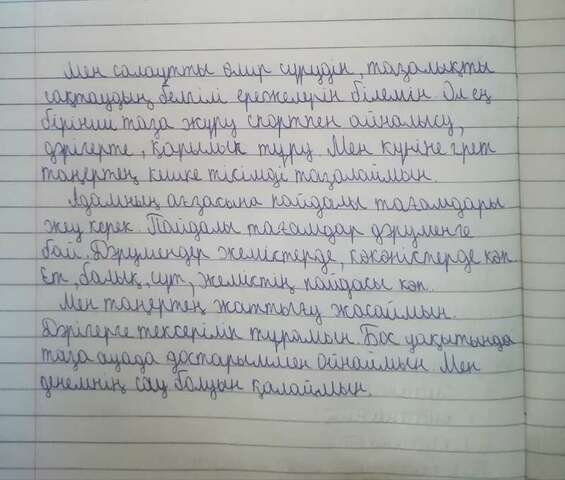 Мен салауатты өмір сүрудің, тазалықты
сақтаудың белгілі ережелерін білемін. Ол ең
бірінші таза жүру спортпен айналысу,
дәрігерге, қаралып тұру. Мен күніне 2 рет
таңертең кешке тісімді тазалаймын.
Адамның ағзасына пайдалы тағамдары
жеу керек. Пайдалы тағамдар дәруменге
бай. Дәрумендер жемістерде, көкөністерде көп
Ет, балық, сүт, жемістің пайдасы көп.
Мен таңертең жаттығу жасаймын.
Дәрігерге тексеріліп тұрамын. Бос уақытында
таза ауада достарыммен ойнаймын. Мен
денемнің сау болуын қалаймын.